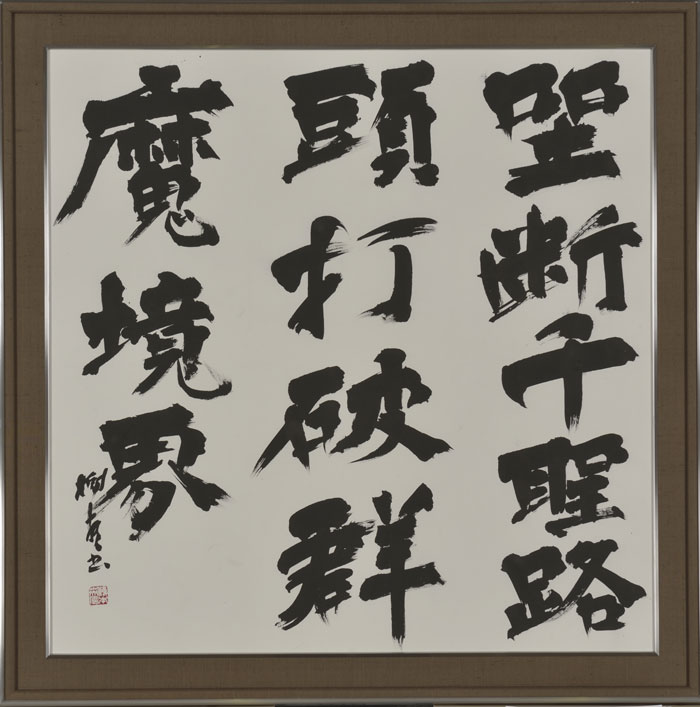 坐断千聖路
頭打破群
魔境界